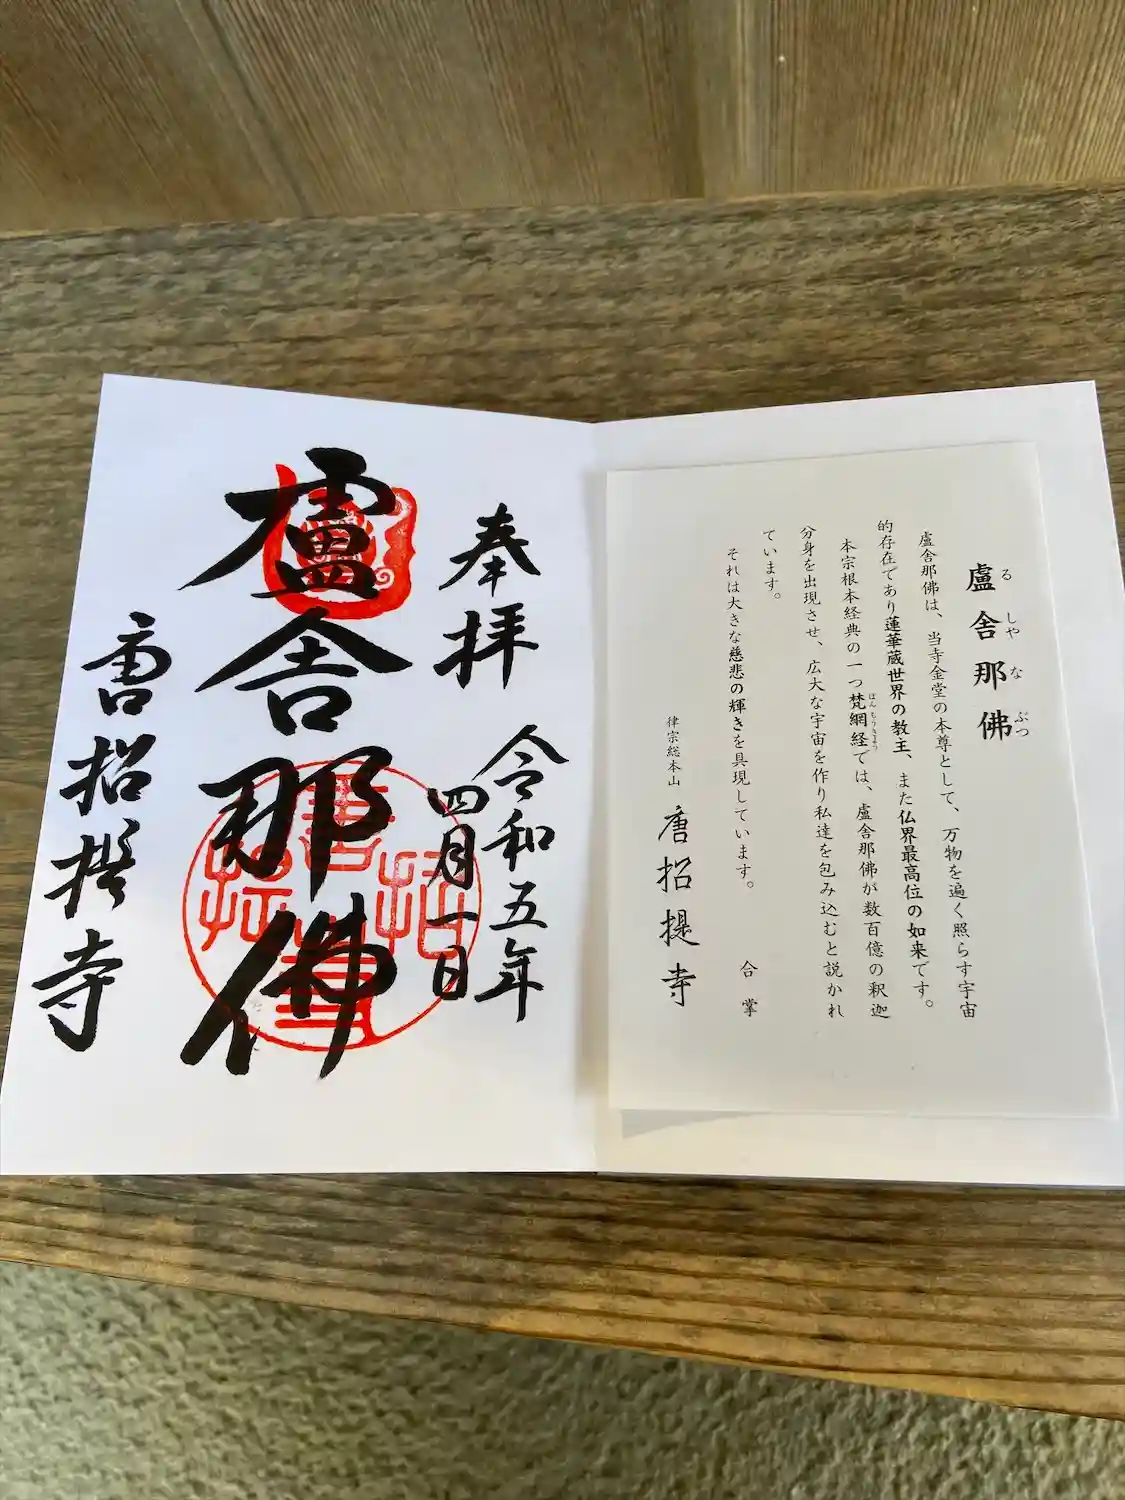 奉拝
令和五年
四月一日
盧舎那佛
唐招提寺
盧舎那佛
るしやなぶつ
盧舎那佛は、当寺金堂の本尊として、万物を遍く照らす宇宙
的存在であり蓮華蔵世界の教主、また仏界最高位の如来です。
本宗根本経典の一つ梵網経では、盧舎那佛が数百億の釈迦
ぼんもうきょう
分身を出現させ、広大な宇宙を作り私達を包み込むと説かれ
ています。
それは大きな慈悲の輝きを具現しています。
合掌
律宗総本山
唐招提寺